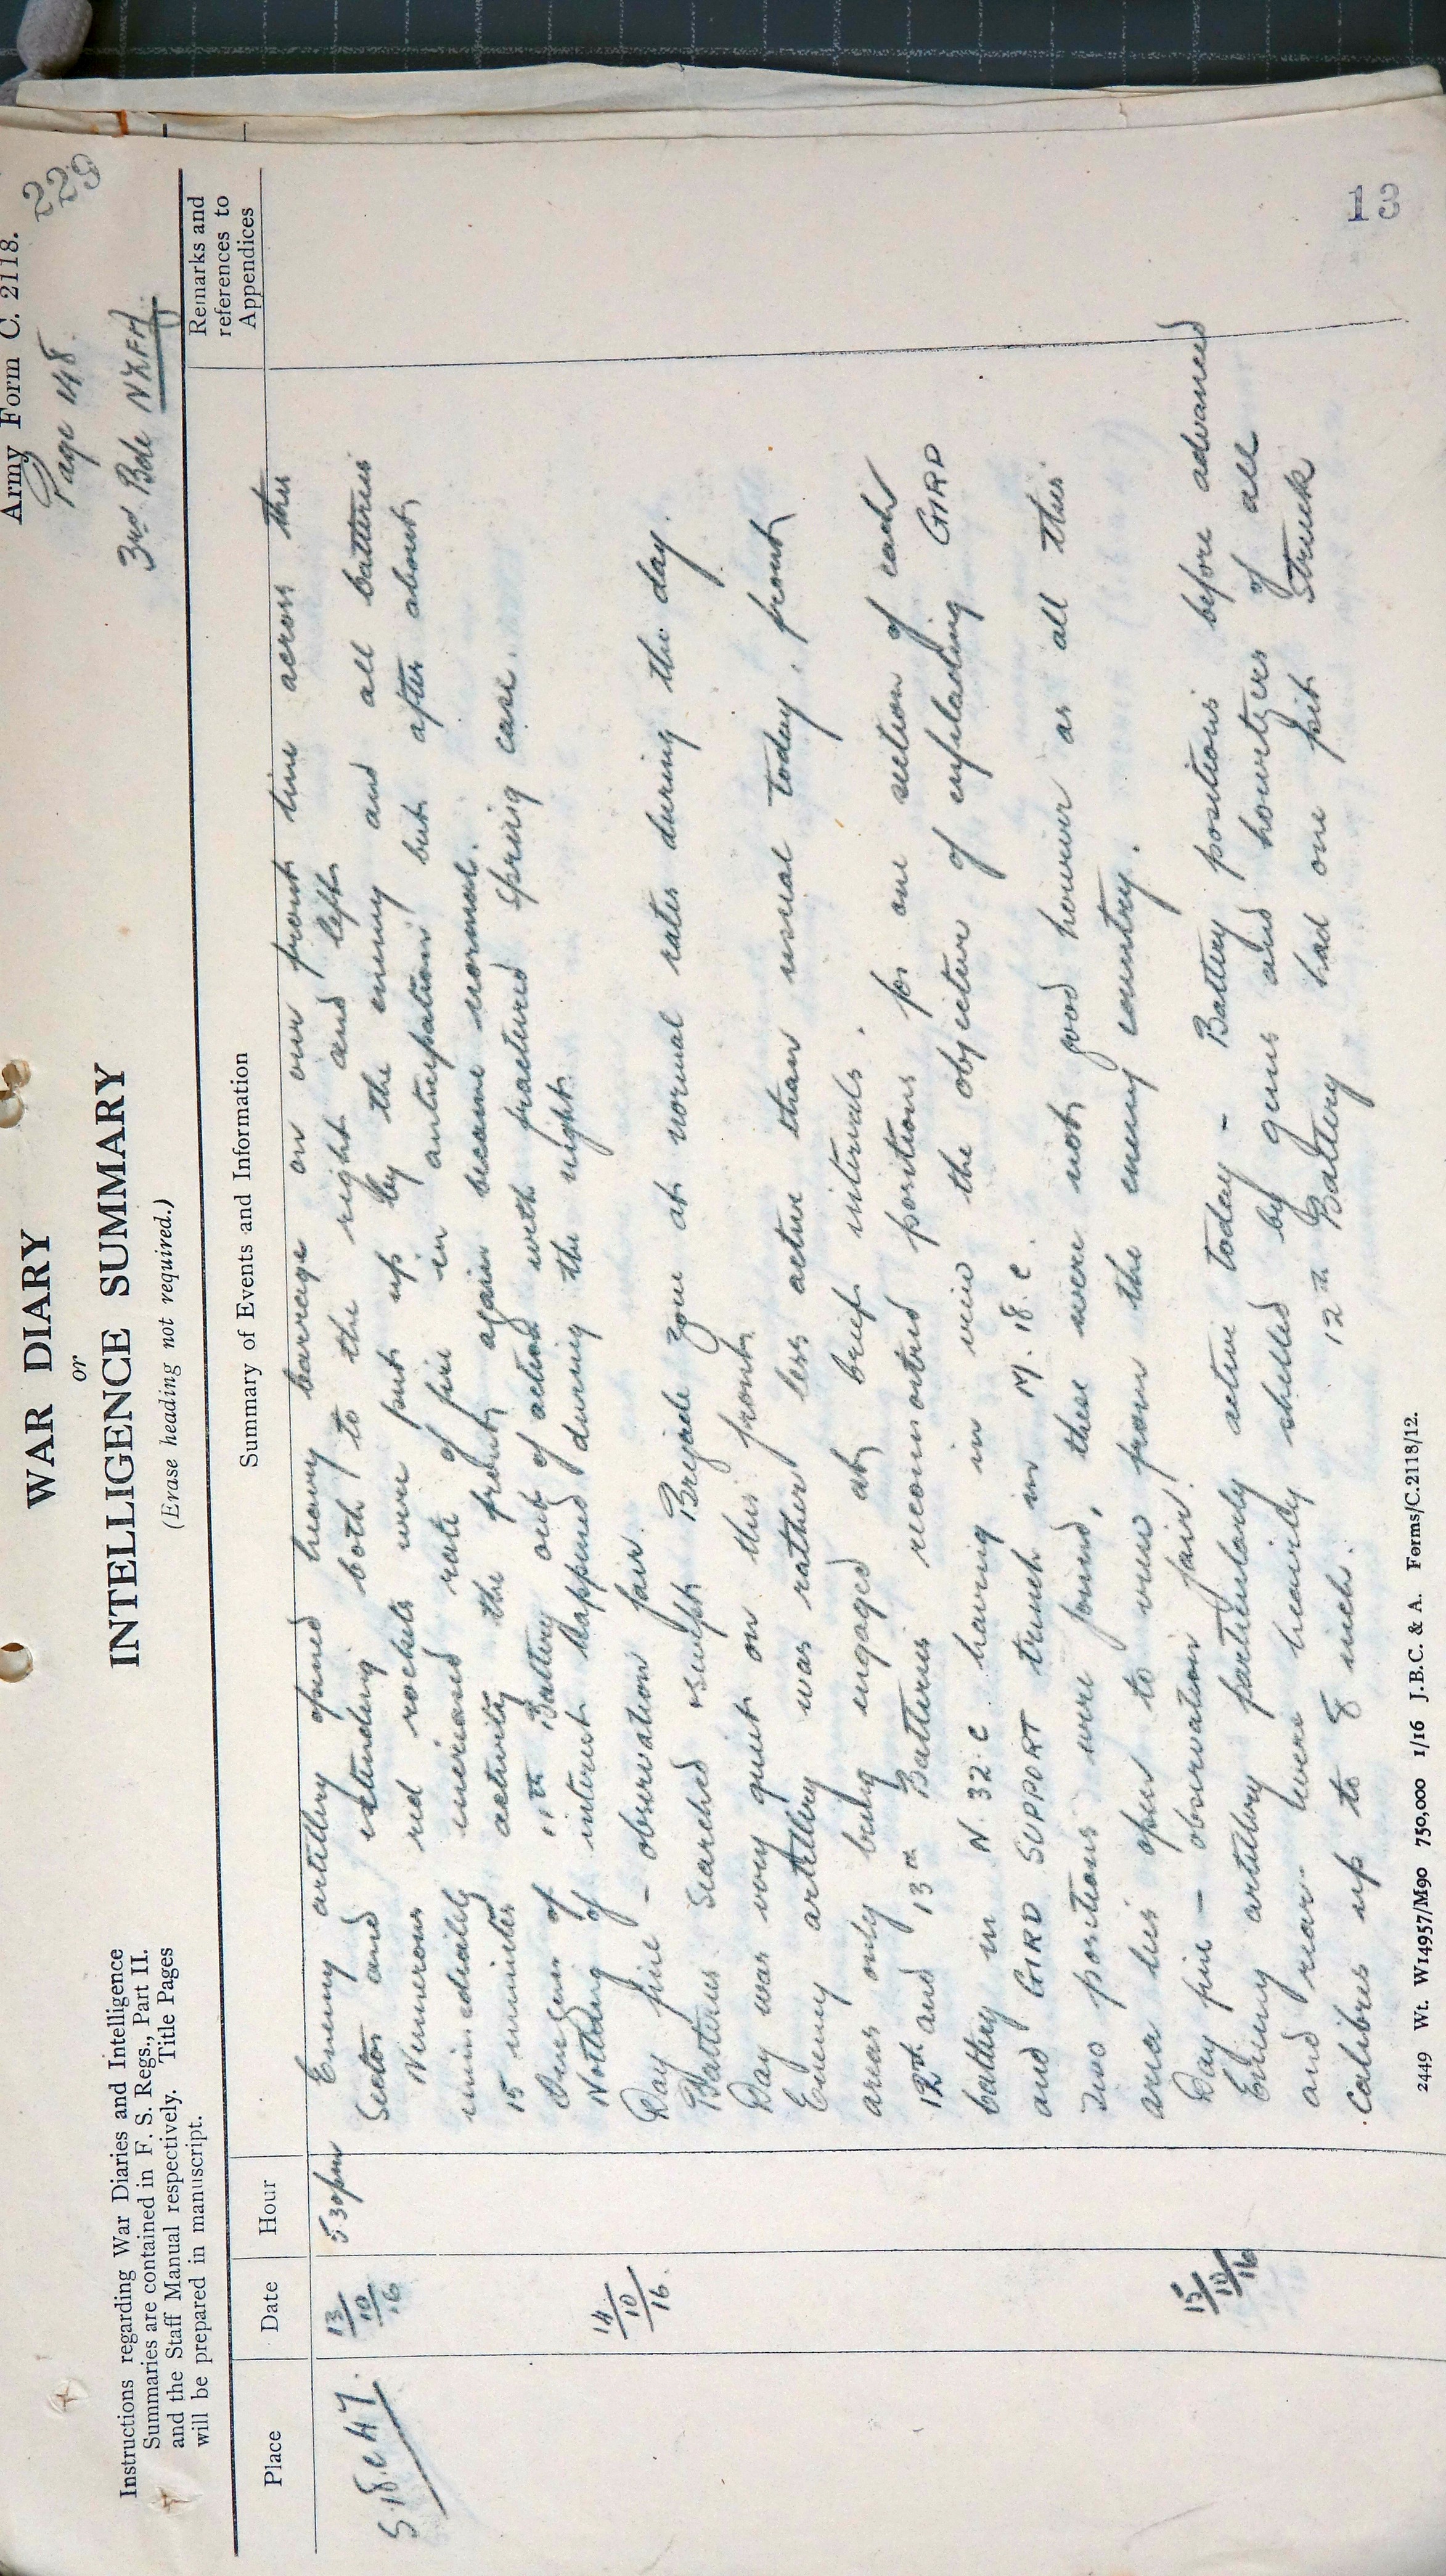 Army Form C. 2118.
229
Page 148.
3rd Bde NZFA
WAR DIARY
or
INTELLIGENCE SUMMARY
(Erase heading not required.)
Instructions regarding War Diaries and Intelligence
Summaries are contained in F. S. Regs., Part II.
and the Staff Manual respectively. Title Pages
will be prepared in manuscript.
Place Date Hour Summary of Events and Information Remarks and references to Appendices
S.18.c.4.7. 13/10/16 5 30pm Enemy artillery opened heavy barrage on our front line across this
Sector and extending both to the right and left
Numerous red rockets were put up by the enemy and all batteries
immediately increased rate of fire in anticipation but after about
15 minutes activity the front again became normal.
One gun of 11th Battery out of action with fractured spring case.
Nothing of interest happened during the night.
14/10/16 Day fine – observation fair.
Batteries searched & swept Brigade zone at normal rates during the day.
Day was very quiet on this front.
Enemy artillery was rather less active than usual today, front
areas only being engaged at brief intervals.
12th and 13th Batteries reconnoitred positions for one section of each
battery in N.32.c having in view the objective of enfilading GIRD
and GIRD SUPPORT trench in M.18.c.
Two positions were found, these were not good however as all this
area lies open to view from the enemy country.
15/10/16 Day fine – observation fair.
Enemy artillery particularly active today – Battery positions before advanced
and rear were heavily shelled by guns and howitzers of all
calibres up to 8 inch. 12th Battery had one pit struck
13
2449 Wt. W14957/M90 750,000 1/16 J.B.C. & A. Forms/C.2118/12.